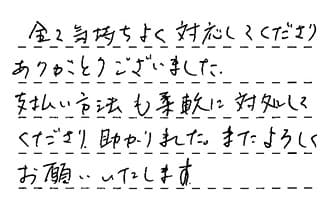 全て気持ちよく対応してくださり
ありがとうございました.
支払い方法も柔軟に対処して
くださり助かりました。またよろしく
お願いいたします